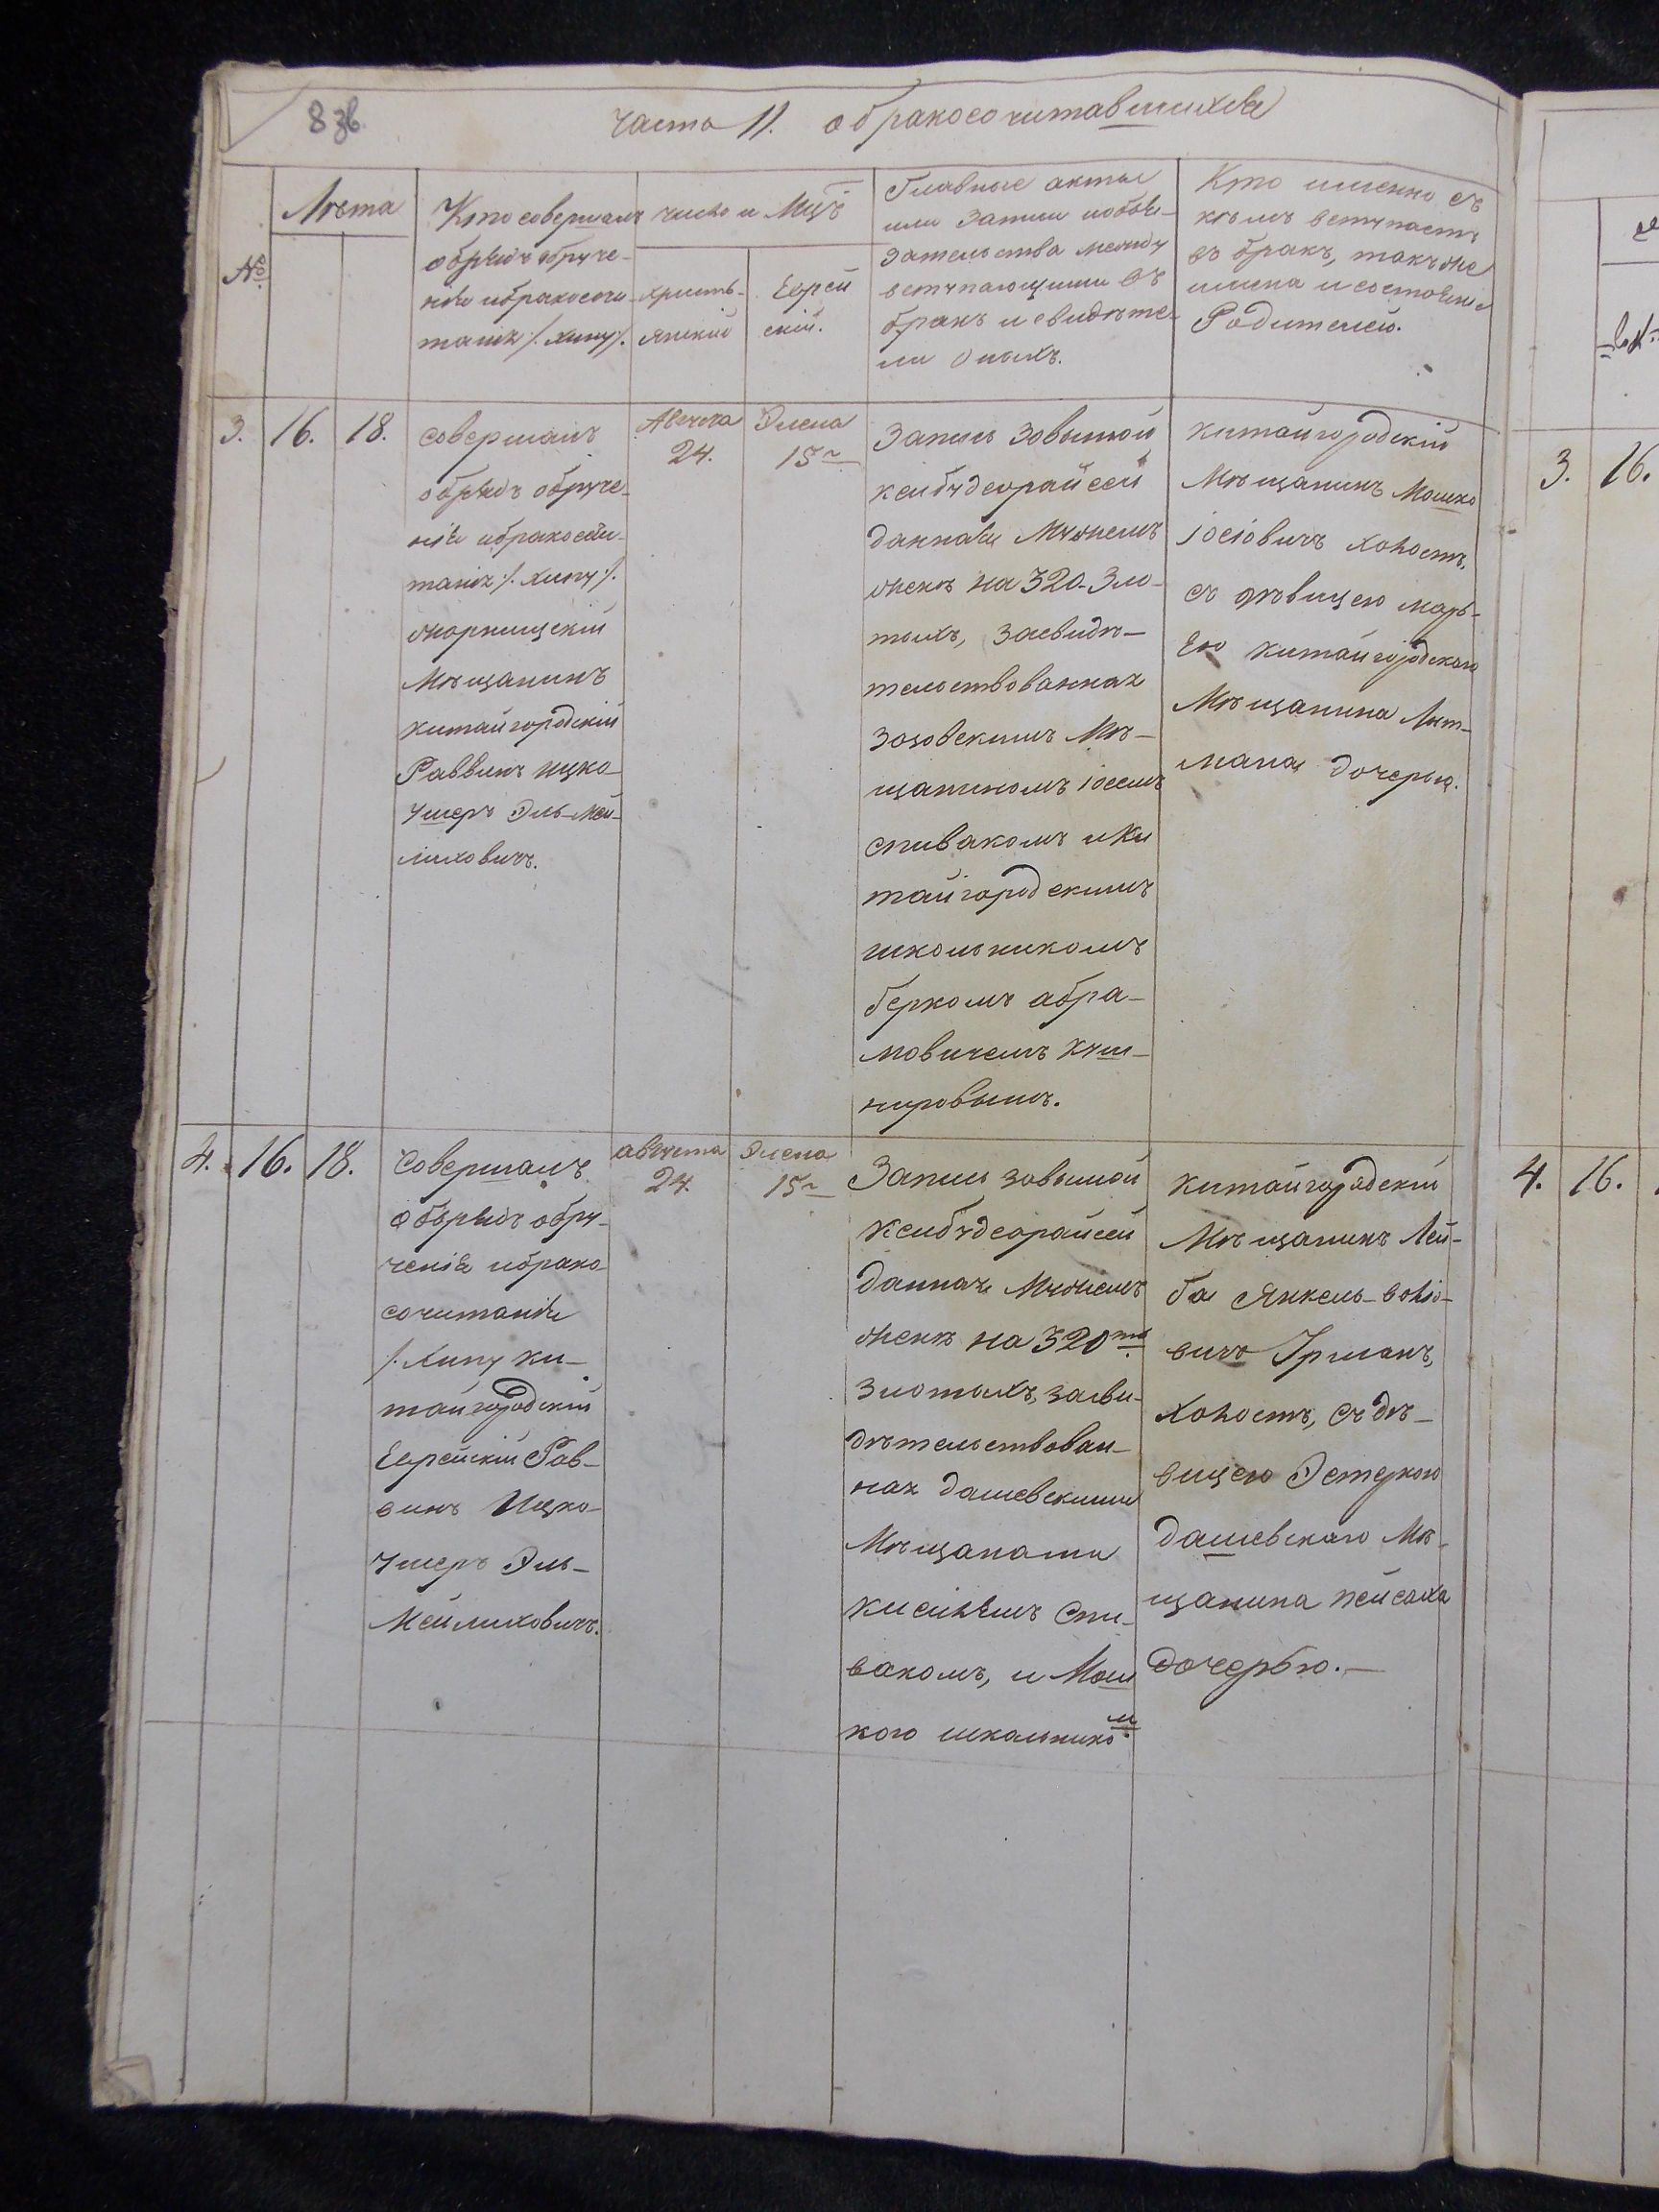 8 зв.
часть II. о бракосочитавшихся
№
Лѣта
Кто совершалъ
обрядъ обруче-
нія ибракосоче-
танія /: хипу:/.
число и Мцъ
христь-
янскій
Еврей
скій.
Главные акты
или Записи иобяза-
зательства между
вступающими въ
бракъ и свидѣте-
ли оныхъ.
Кто именно съ
кѣмъ вступаетъ
въ бракъ, такъже
имена и состояніе
Родителей.
3. 16. 18.
совершалъ
обрядъ обруче-
нія ибракосочи-
танія /: хипу:/.
жорнищскій
Мѣщанинъ
китайгородскій
Раввинъ ицко-
Ушеръ Эль-мей-
лиховичъ.
Августа
24.
Элена
15го
Запись зовымой
ксибудеорайсей
данная Мужемъ
женѣ на 320. Зло-
тыхъ, засвидѣ-
тельствованная
зозовскимъ Мѣ-
щаниномъ іосемъ
спивакомъ и Ки
тайгородскимъ
школьникомъ
беркомъ абра-
мовичемъ куш-
нировымъ.
китайгородскій
Мѣщанинъ Мошко
іосіовичъ холостъ,
съ дѣвицею марь-
ею китайгородскаго
Мѣщанина Лит-
мана дочерью.
4. 16. 18.
Совершалъ
обърядъ обру-
ченія ибрако-
сочитанія
/: хипу ки-
тайгородскій
Еврейскій Рав-
винъ Ицко-
Ушеръ Эль-
Мейлиховичъ.
августа
24.
Элена
15го
Запись зовымой
ксибудеорайсей
данная Мужемъ
женѣ на 320ть
злотыхъ, засви-
дѣтельствован-
ная дашевскими
Мѣщанами
кисилемъ Спи-
вакомъ, и Мош
кою школьникомъ
китайгородскій
Мѣщанинъ Лей-
ба Янкель-волio-
вичъ Урманъ,
холостъ, съ дѣ-
вицею Эстерою
дашевскаго Мѣ-
щанина пейсаха
дочерью.-
3. 16.
4. 16.